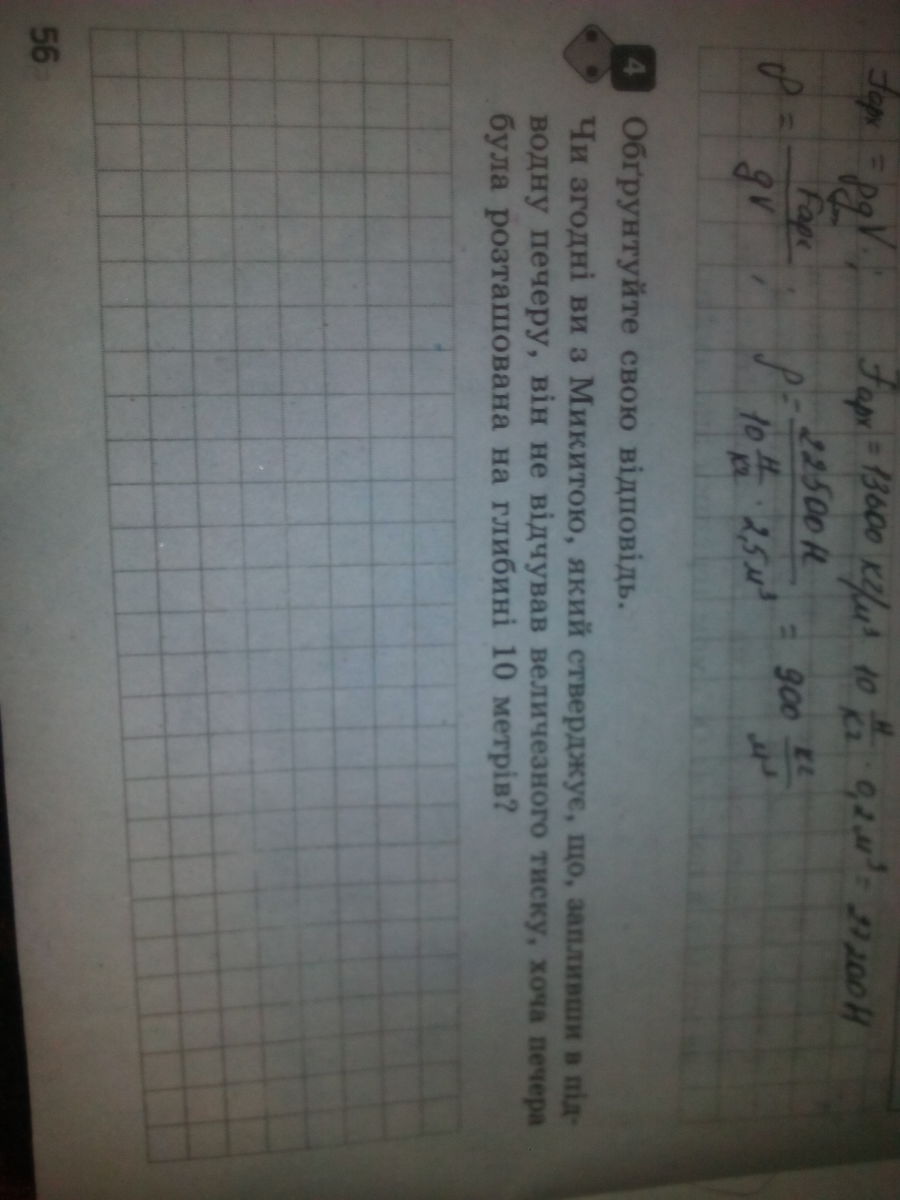 Fарх = ρрт gV; Fарх = 13600 кг/м³ 10 Н/кг · 0,2 м³ = 27200 Н
ρ = Fарх / gV ; ρ = 22500 Н / 10 Н/кг · 2,5 м³ = 900 кг/м³
4 Обґрунтуйте свою відповідь.
Чи згодні ви з Микитою, який стверджує, що, запливши в під-
водну печеру, він не відчував величезного тиску, хоча печера
була розташована на глибині 10 метрів?
56